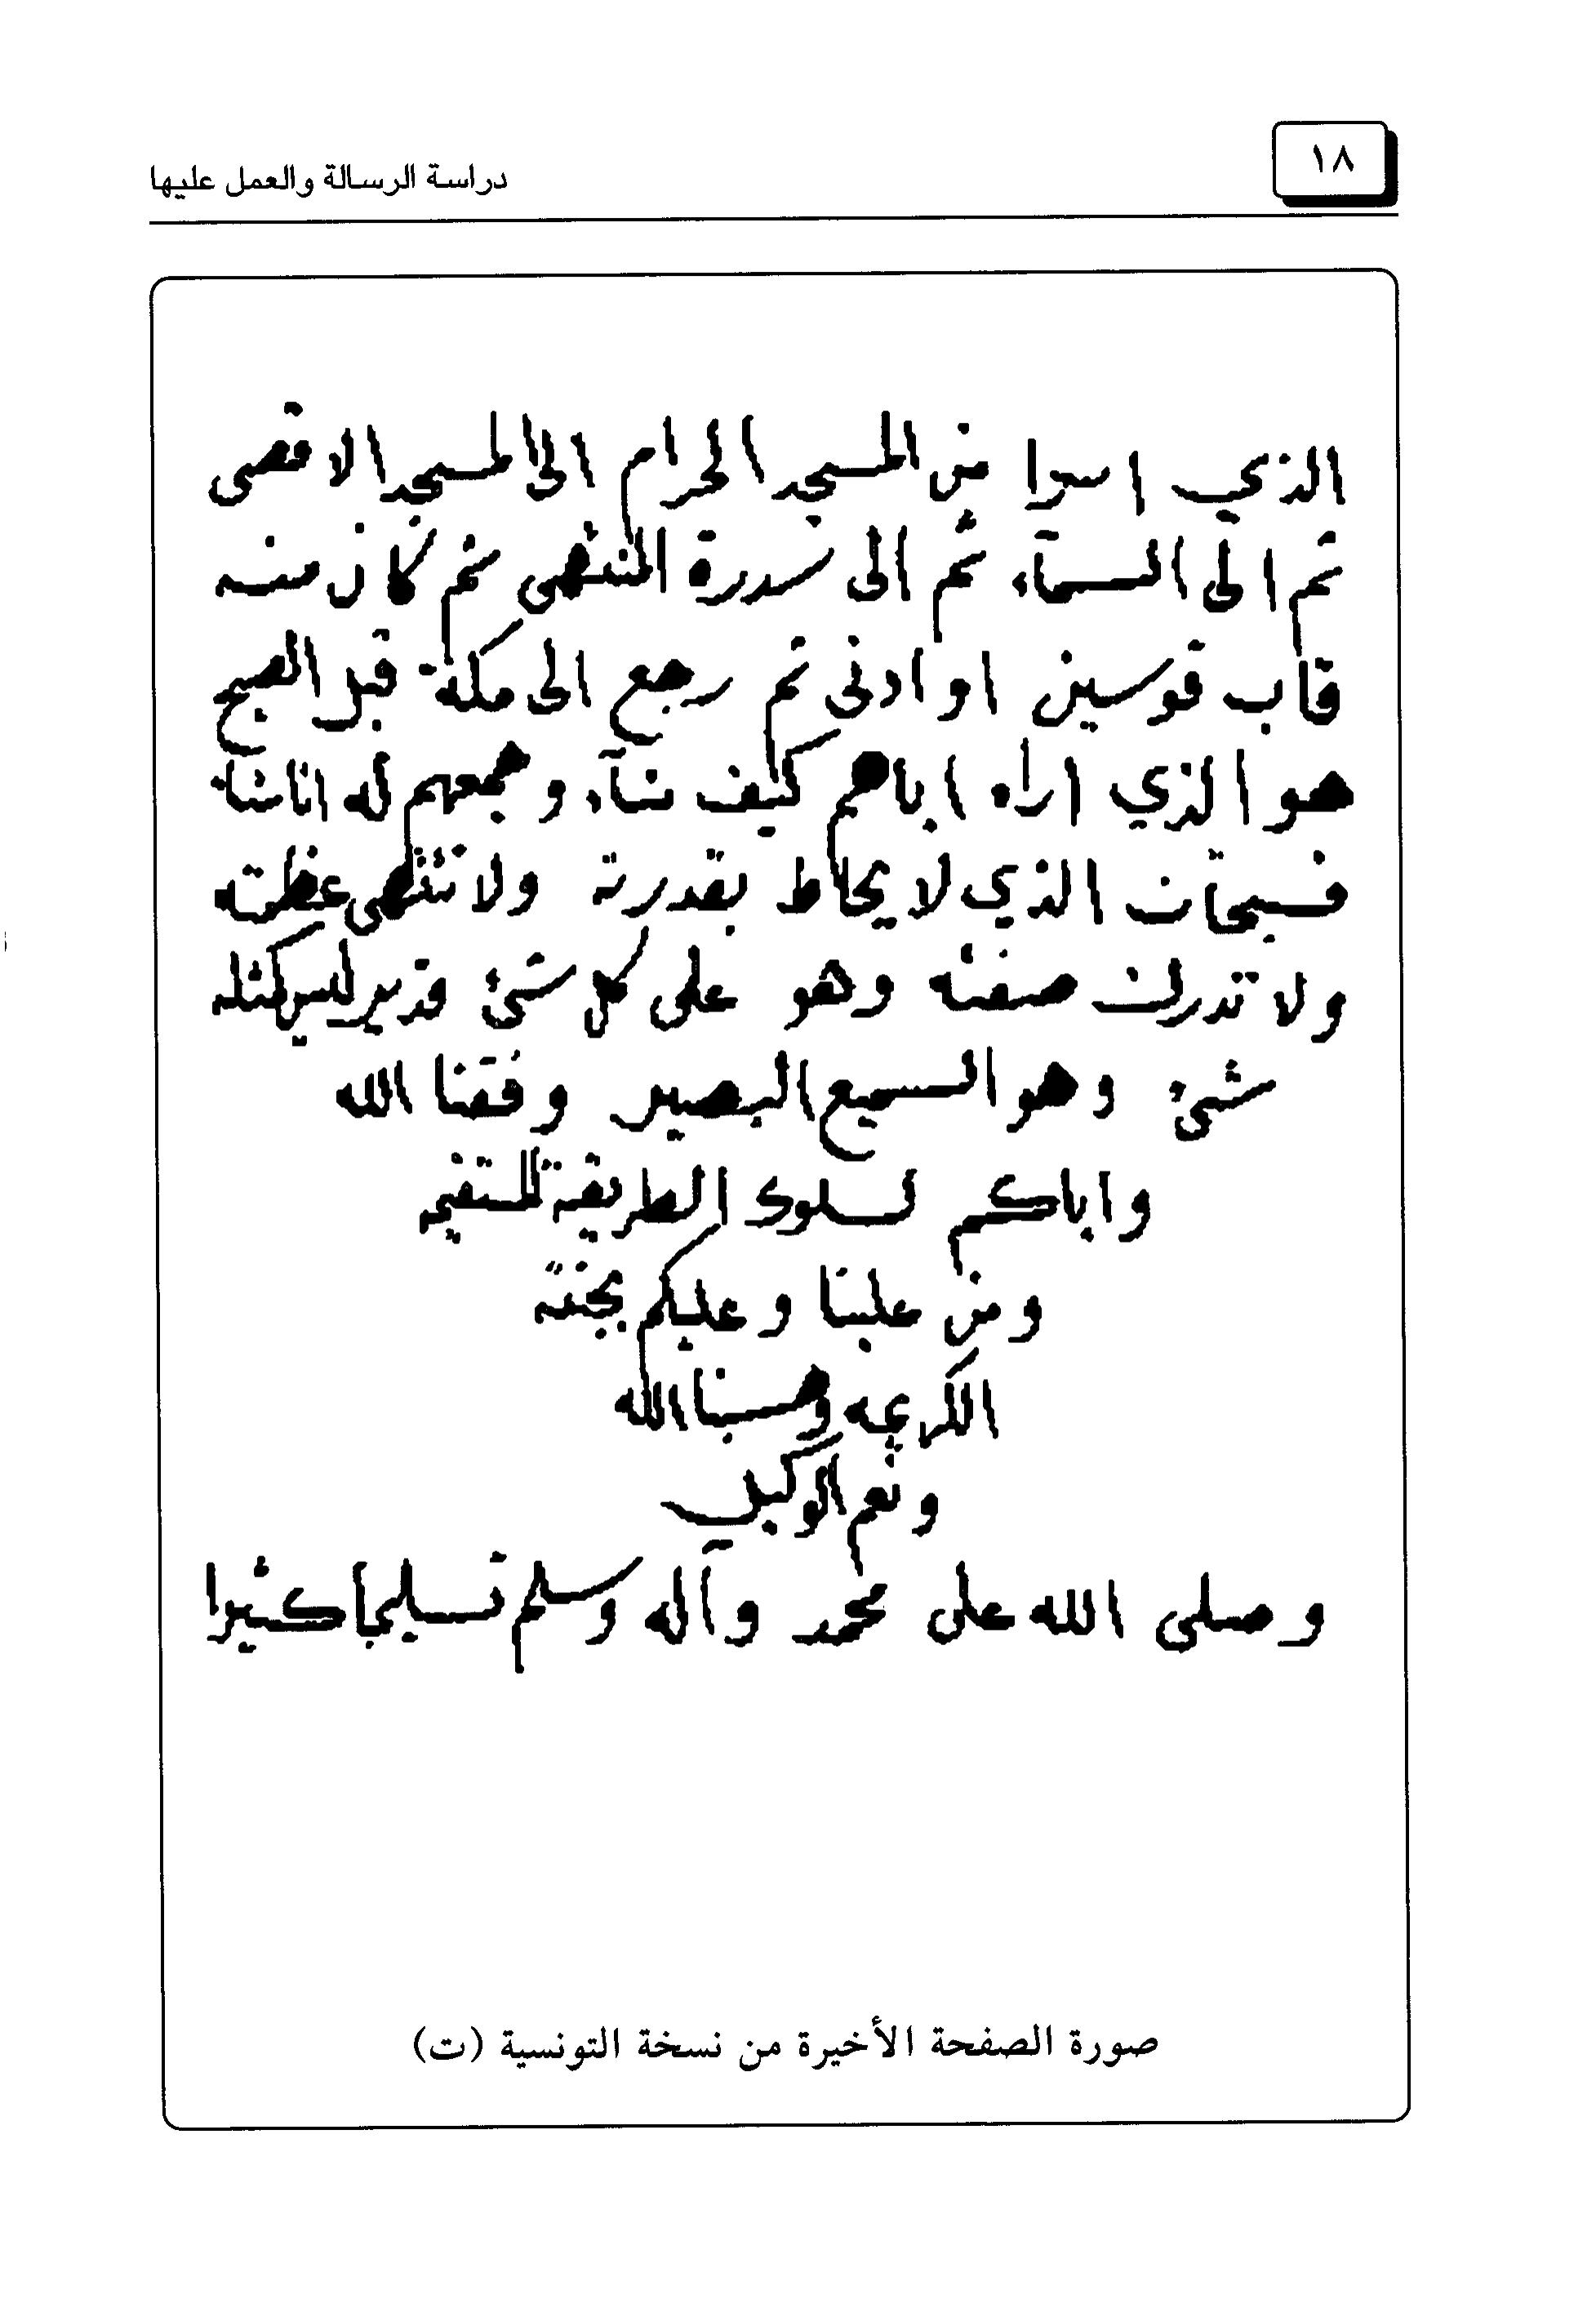 ١٨
دراسة الرسالة والعمل عليها
الذي اسرا من المسجد الحرام الى المسجد الاقصى
ثم الى السمآء ثم الى سدرة المنتهى ثم كان منه
قاب قوسين او ادنى ثم رجع الى مكة قبل الصبح
هو الذي اراه اياهم كيف شآء وجمعهم له اذا شاء
فسبحان الذي لا يحاط بقدرته ولا تنتهى عظمته
ولا تدرك صفته وهو على كل شئ قدير ليس كمثله
شئ وهو السميع البصير وفقنا الله
واياكم لسلوك الطريقة المستقيمه
ومن علينا وعليكم بجنته
الكريمه وحسبنا الله
ونعم الوكيل
وصلى الله على محمد وآله وسلم تسليما كثيرا
صورة الصفحة الأخيرة من نسخة التونسية (ت)